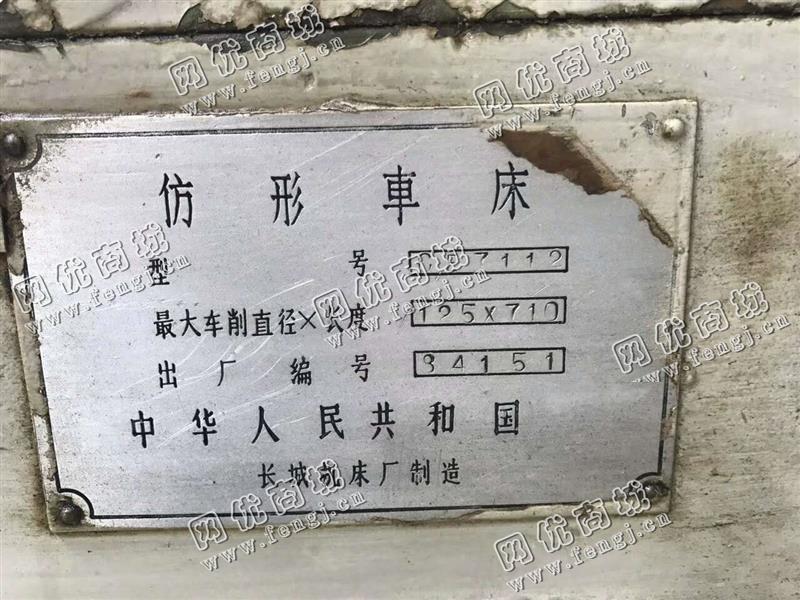 网优商城
www.fengj.cn
网优商城
www.fengj.cn
仿形車床
型号 C 7112
最大车削直径×长度 125X710
出厂编号 84151
中华人民共和国
长城机床厂制造
网优商城
www.fengj.cn
网优商城
www.fengj.cn
网优商城
www.fengj.cn
网优商城
www.fengj.cn